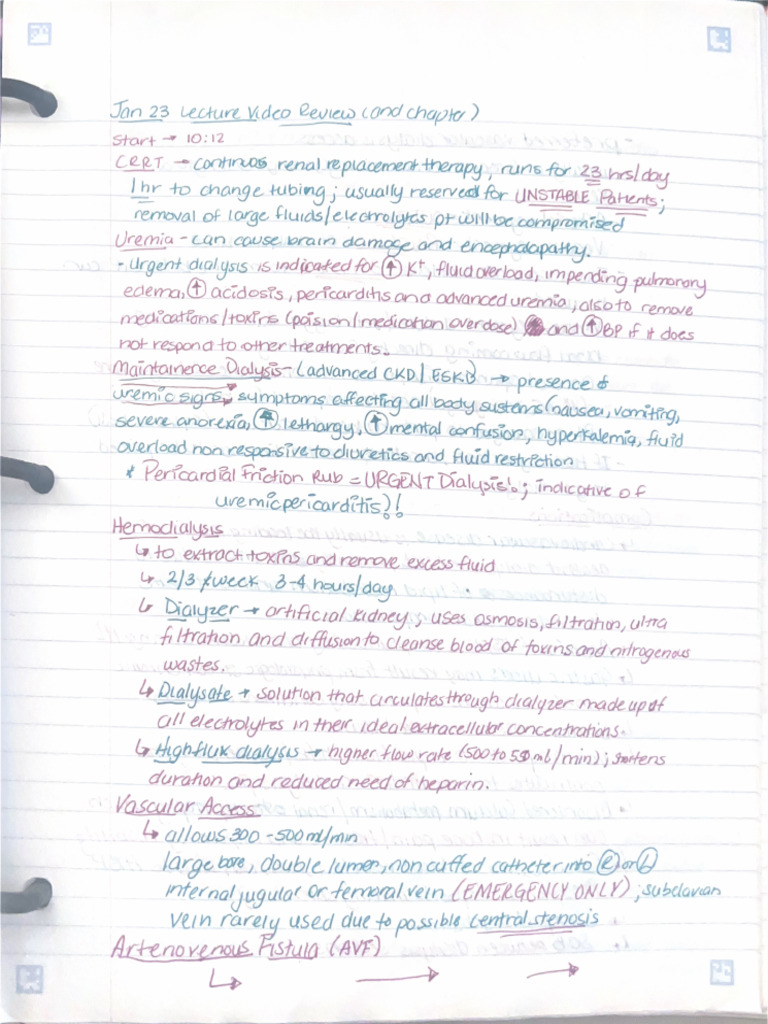 Jan 23 Lecture Video Review (and chapter)
Start → 10:12
CRRT → continuos renal replacement therapy, runs for 23 hrs/day
1hr to change tubing; usually reserved for UNSTABLE Patients;
removal of large fluids/electrolytes pt will be compromised
Uremia - can cause brain damage and encephalopathy.
- Urgent dialysis is indicated for ↑ K+, fluid overload, impending pulmonary
edema, ↑ acidosis, pericarditis and advanced uremia, also to remove
medications/toxins (poision/medication overdose) and ↑ BP if it does
not respond to other treatments.
Maintainence Dialysis - (advanced CKD/ESKD) → presence of
uremic signs, symptoms affecting all body systems (nausea, vomiting,
severe anorexia, ↑ lethargy, ↑ mental confusion, hyperkalemia, fluid
overload non responsive to diuretics and fluid restriction
* Pericardial Friction Rub = URGENT Dialysis!; indicative of
uremic pericarditis)!!
Hemodialysis
↳ to extract toxins and remove excess fluid
↳ 2/3 x/week 3-4 hours/day
↳ Dialyzer → artificial kidney; uses osmosis, filtration, ultra
filtration and diffusion to cleanse blood of toxins and nitrogenous
wastes.
↳ Dialysate → solution that circulates through dialyzer made up of
all electrolytes in their ideal extracellular concentrations.
↳ High flux dialysis → higher flow rate (500 to 550 ml/min); shortens
duration and reduced need of heparin.
Vascular Access
↳ allows 300 - 500 ml/min
large bore, double lumen, non cuffed catheter into (R) or (L)
internal jugular or femoral vein (EMERGENCY ONLY); subclavian
vein rarely used due to possible central stenosis
Artenovenous Fistula (AVF)
↳ → →